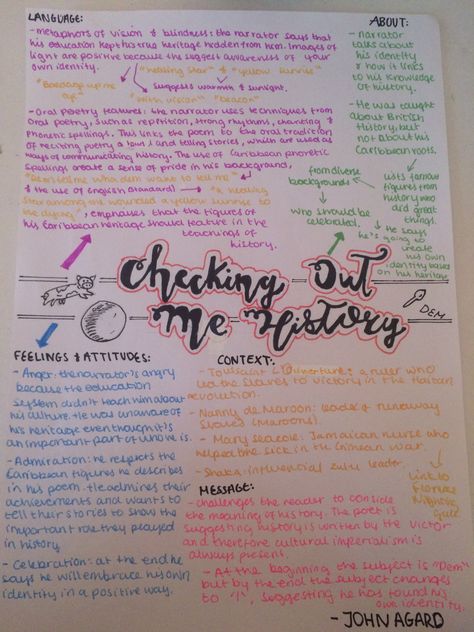 LANGUAGE:
- metaphors of vision & blindness: the narrator says that
his education kept his true heritage hidden from him. Images of
light are positive because the suggest awareness of your
own identity.
"healing star" & "yellow sunrise"
"Bandage up me
eye"
suggests warmth & sunlight.
"with vision" "beacon"
- Oral poetry features: the narrator uses techniques from
oral poetry, such as repetition, strong rhythms, chanting &
phonetic spellings. This links the poem to the oral tradition
of reciting poetry aloud and telling stories, which are used as
ways of communicating history. The use of Caribbean phonetic
spellings create a sense of pride in his background,
me"
& the use of English (standard) "a healing
star among the wounded a yellow sunrise to
the dying", emphasises that the figures of
his Caribbean heritage should feature in the
teachings of
history.
ABOUT:
- narrator
talks about
his identity
& how it
links to
his knowledge
of history.
- He was taught
about British
History, but
not about his
Caribbean roots.
lists famous
figures from
history who
did great
things.
from diverse
backgrounds
who should be
celebrated.
He says
he's going to
create his
own identity
based on
his heritage
Checking Out
Me History
DEM
FEELINGS & ATTITUDES:
- Anger: the narrator is angry
because the education
system didn't teach him about
his culture. He was unaware of
his heritage even though it is
an important part of who he is.
- Admiration: he respects the
Caribbean figures he describes
in his poem. He admires their
achievements and wants to
tell their stories to show the
important role they played
in history.
- Celebration: at the end he
says he will embrace his own
identity in a positive way.
CONTEXT:
- Toussaint L'Ouverture: a ruler who
slaves to victory in the Haitian
revolution.
- Nanny de Maroon: leader of runaway
slaves (maroons).
- Mary Seacole: Jamaican nurse who
helped the sick in the Crimean war.
- Shaka: influential zulu leader.
link to
Florence
Nightingale
MESSAGE:
- challenges the reader to consider
the meaning of history. The poet is
suggesting history is written by the victor
and therefore cultural imperialism is
always present.
- At the beginning the subject is "Dem"
but by the end the subject changes
to 'I', suggesting he has found his
own identity.
- JOHN AGARD